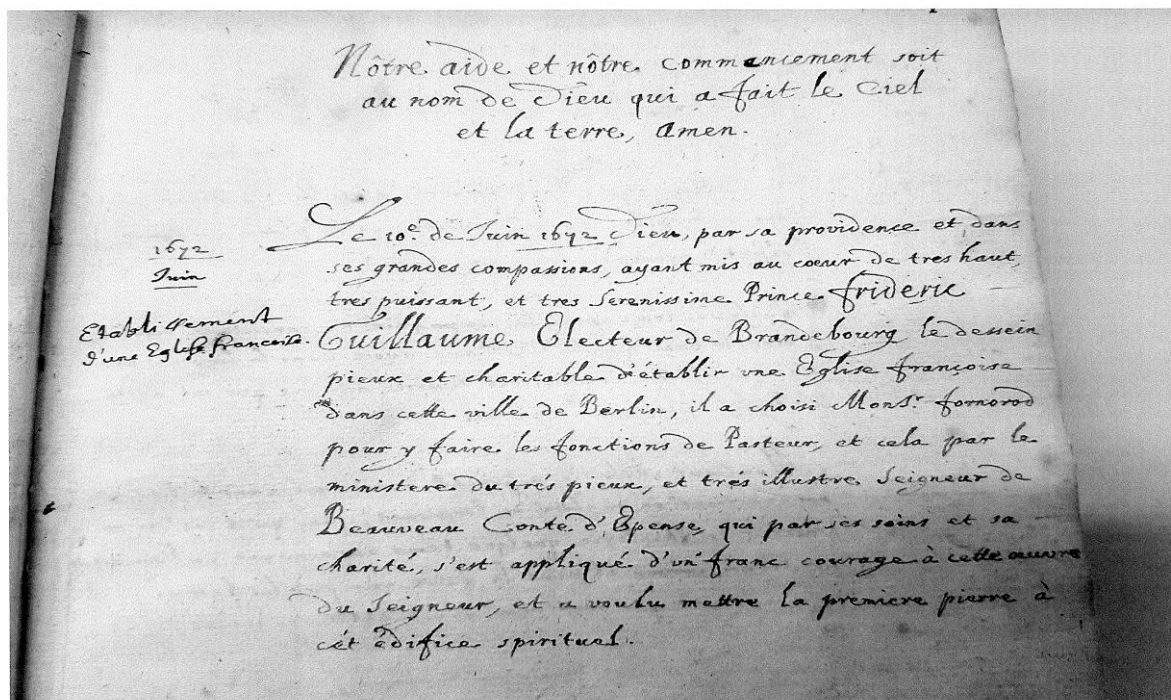 Nôtre aide et nôtre commancement soit
au nom de Dieu qui a fait le Ciel
et la terre, amen.
1672
Juin
Etablissement
d'une Eglise francoise.
Le 10e. de Juin 1672 Dieu, par sa providence et dans
ses grandes compassions, ayant mis au cœur de tres haut,
tres puissant, et tres Serenissime Prince frideric
Guillaume Electeur de Brandebourg le dessein
pieux et charitable d'établir vne Eglise françoise
dans cette ville de Berlin, il a choisi Monsr. fornorod
pour y faire les fonctions de Pasteur, et cela par le
ministere du trés pieux, et trés illustre Seigneur de
Beauveau Conte d'Epense, qui par ses soins et sa
charité, s'est appliqué d'un franc courage à cette œuvre
du Seigneur, et a voulu mettre la premiere pierre à
cét édifice spirituel.